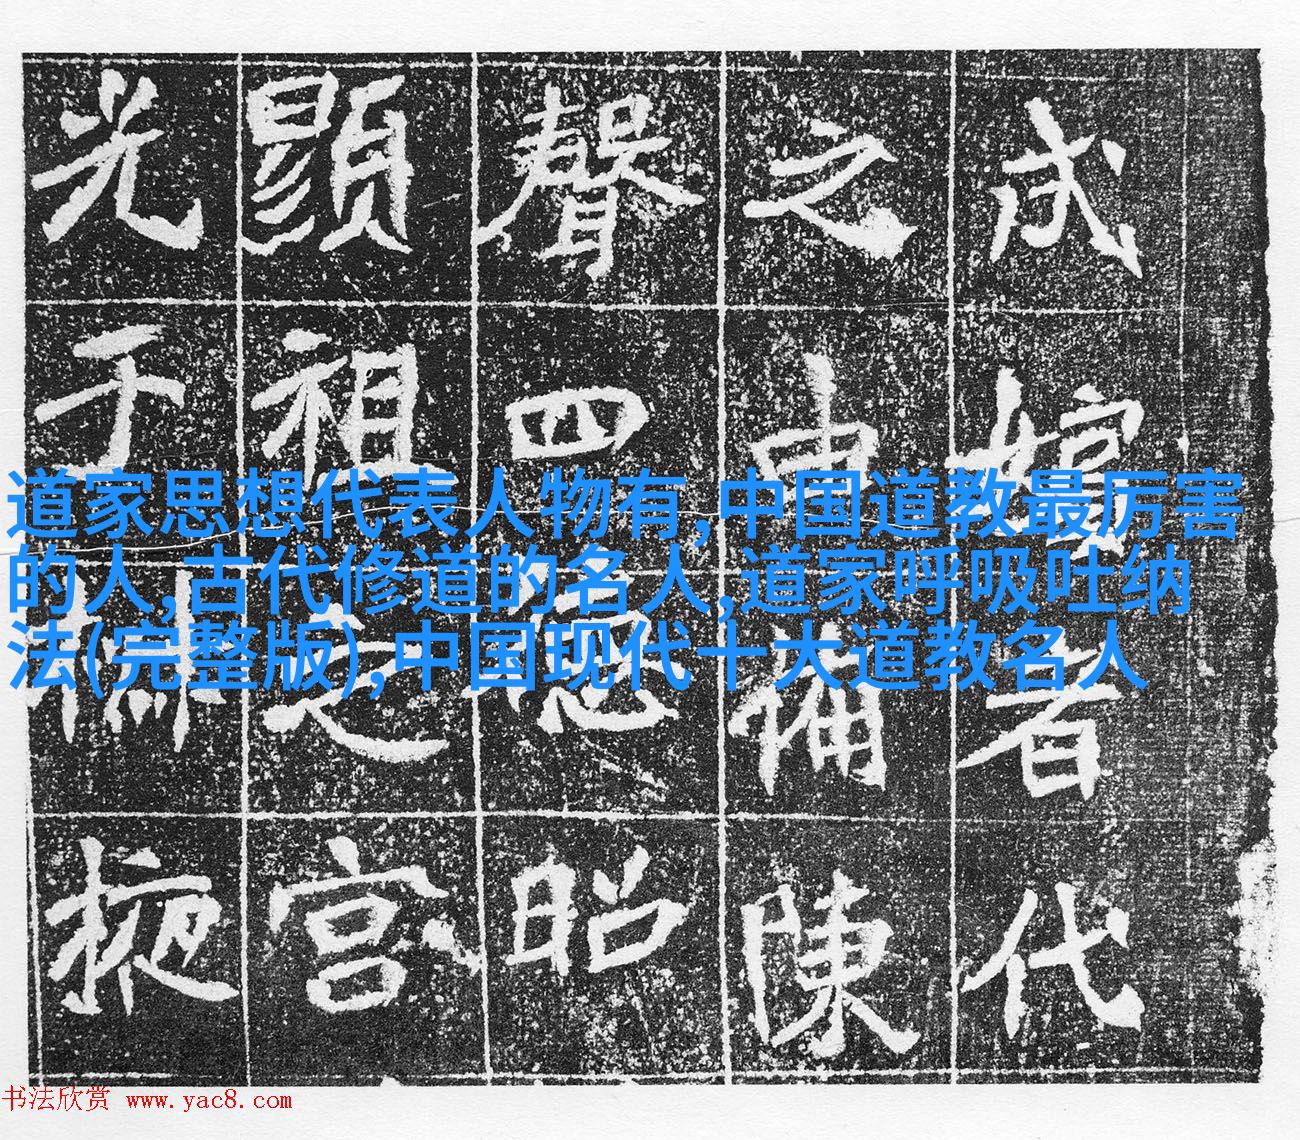 者代
之
備陳
聲四
昭
顯祖
之宮
光于
掖
道家思想代表人物有,中国道教最厉害
的人,古代修道的名人,道家呼吸吐纳
法(完整版),中国现代十大道教名人
书法欣赏 www.yac8.com